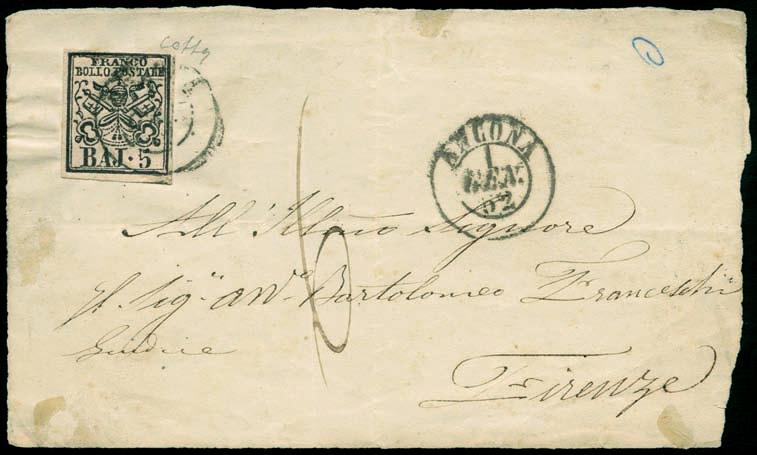 cotta
FRANCO
BOLLO POSTALE
BAI·5
ANCONA
1
GEN.
52
All' Illmo Signore
Il Sigr. avvo. Bartolomeo Franceschi
Giudice
Firenze